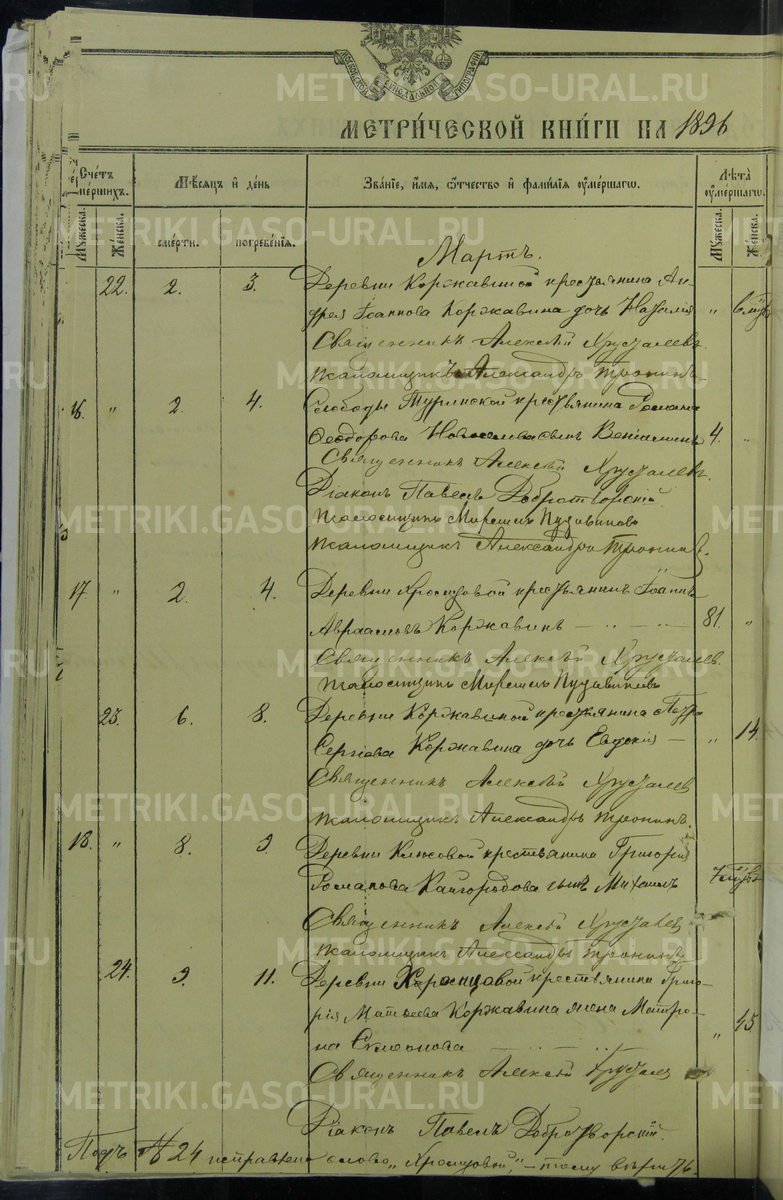 МОСКОВСКОЙ СѴНОДАЛЬНОЙ ТИПОГРАФІИ
МЕТРИ́ЧЕСКОЙ КНИ́ГИ НА 1896
Счетъ умершихъ.
Мужеска.
Женска.
Мѣсяцъ и день
смерти.
погребенія.
Званіе, имя, отчество и фамилія умершаго.
Лѣта умершаго.
Мужеска.
Женска.
Мартъ.
22. 2. 3. Деревни Коржавиной крестьянина Ан-
дрея Іоаннова Коржавина дочь Наталія "
Священникъ Алексѣй Хрусталевъ.
Псаломщикъ Александръ Тронинъ
16. " 2. 4. Слободы Туринской крестьянина Романа
Ѳеодорова сынъ Веніаминъ 4. "
Священникъ Алексѣй Хрусталевъ.
Діаконъ Павелъ Добротворскій
Псаломщикъ
Псаломщикъ Александръ Тронинъ.
17 " 2. 4. Деревни Хромцовой крестьянинъ Іоаннъ
Авраамовъ Коржавинъ 81. "
Священникъ Алексѣй Хрусталев.
Псаломщикъ
23. 6. 8. Деревни Коржавиной крестьянина Петра
Сергіева Коржавина дочь Евдокія " 14.
Священникъ Алексѣй Хрусталев
Псаломщикъ Александръ Тронинъ.
18. " 8. 9 Деревни крестьянина Григорія
Романова Кайгородова сынъ Михаилъ
Священникъ Алексѣй Хрусталев
Псаломщикъ Александръ Тронинъ
24. 9. 11. Деревни Хромцовой крестьянина Григо-
рія Матѳеева Коржавина жена Матро-
на Симеонова " 45
Священникъ Алексѣй Хрусталев
Діаконъ Павелъ Добротворскій.
Подъ № 24 исправлено слово „Хромцовой",
METRIKI.GASO-URAL.RU